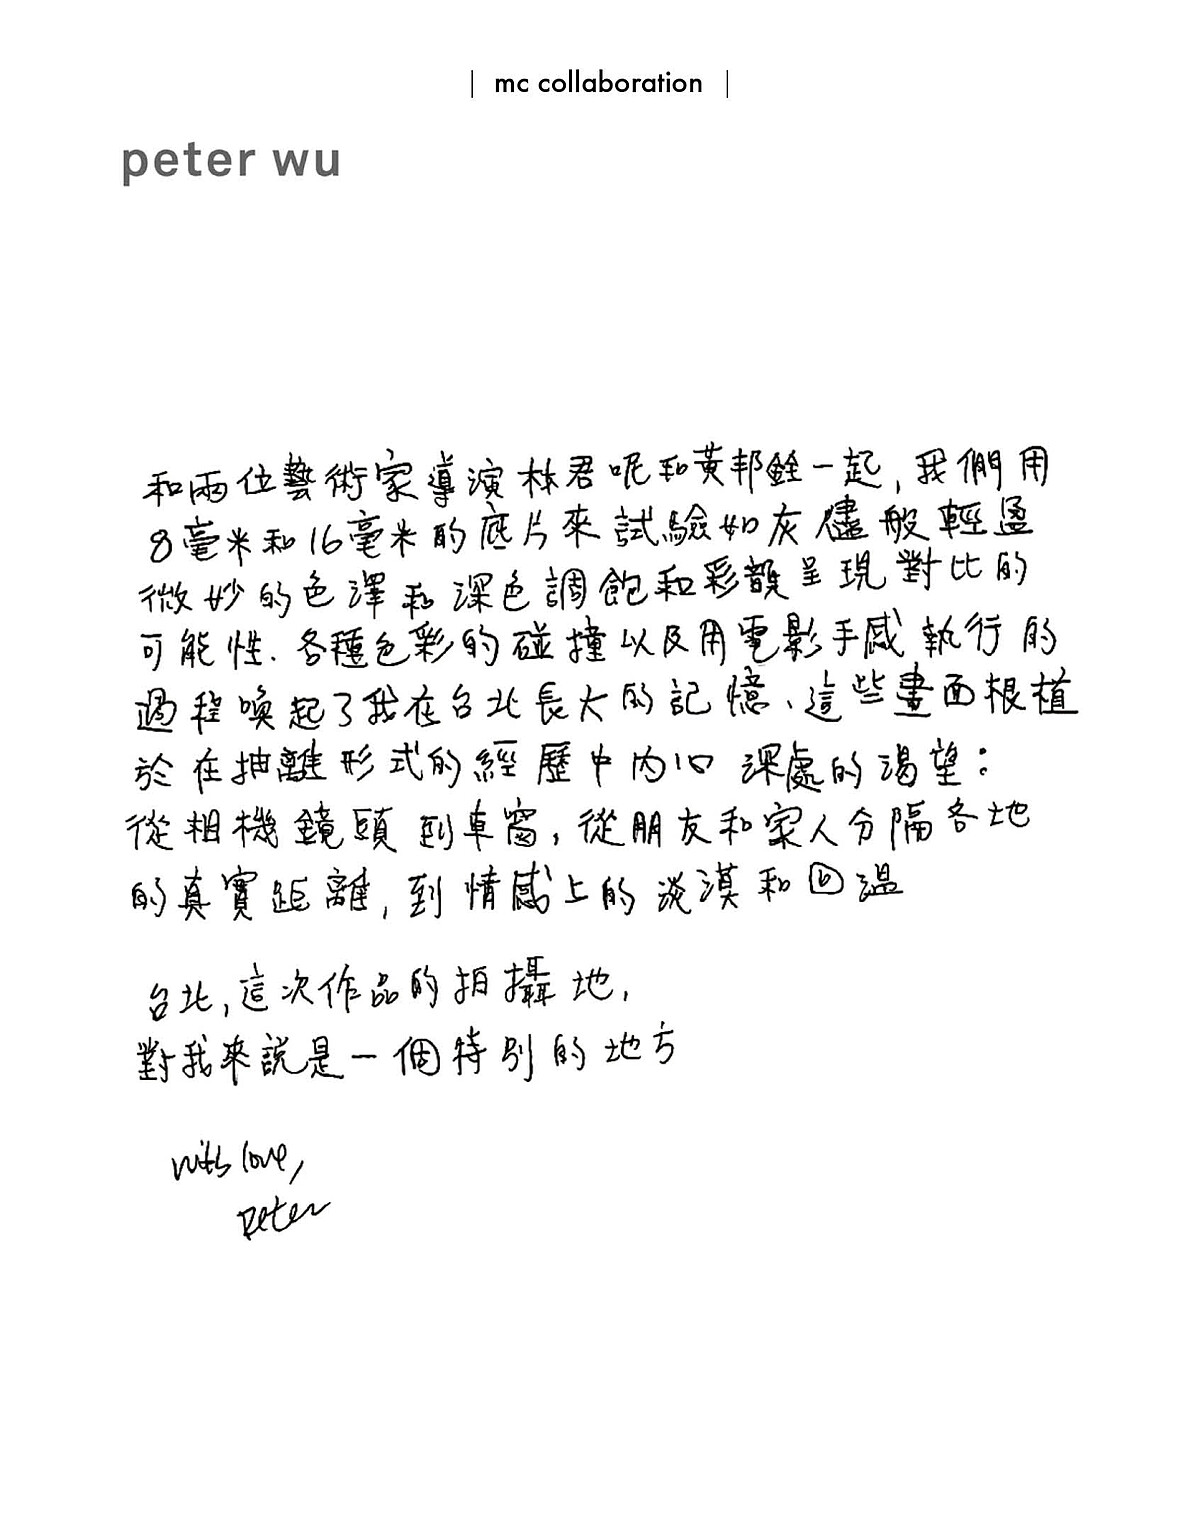 | mc collaboration |
peter wu
和兩位藝術家導演林君呢和黃邦銓一起, 我們用
8毫米和16毫米的底片來試驗如灰燼般輕盈
微妙的色澤和深色調飽和彩韻呈現對比的
可能性. 各種色彩的碰撞以及用電影手感執行的
過程喚起了我在台北長大的記憶、這些畫面根植
於在抽離形式的經歷中內心深處的渴望:
從相機鏡頭到車窗, 從朋友和家人分隔各地
的真實距離, 到情感上的淡漠和回溫
台北, 這次作品的拍攝地,
對我來說是一個特別的地方
with love,
Peter